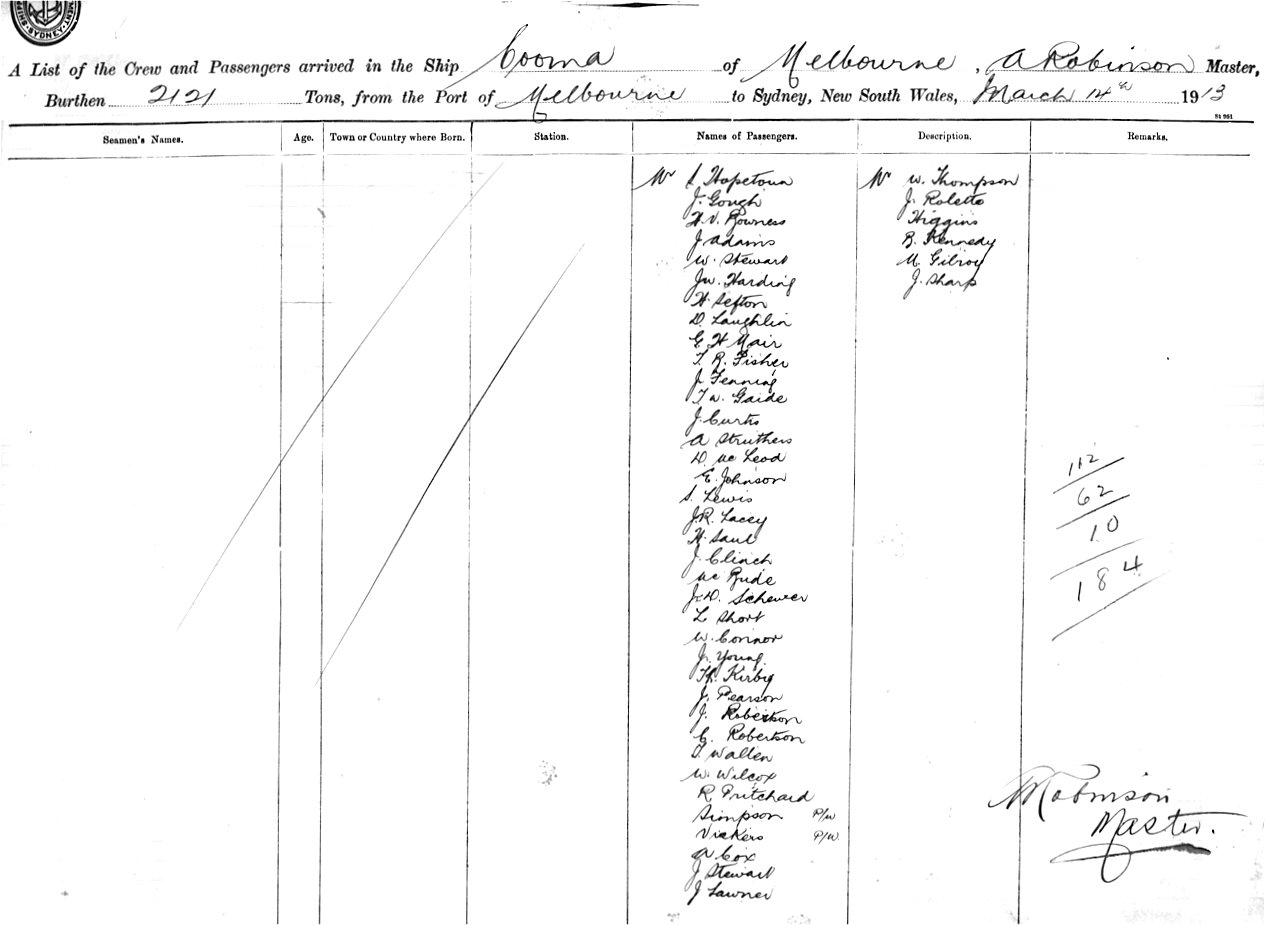 SYDNEY
A List of the Crew and Passengers arrived in the Ship Cooma of Melbourne, A Robinson Master,
Burthen 2121 Tons, from the Port of Melbourne to Sydney, New South Wales, March 14th 1913
St 951
Seamen's Names. Age. Town or Country where Born. Station. Names of Passengers. Description. Remarks.
Mr S Hopetoun Mr W. Thompson
J. Gough J. Roletto
H.V. Rowness Higgins
J Adams B. Kennedy
W. Stewart M. Gilroy
J.W. Harding J. Sharp
H. Sefton
D. Laughlin
E H Mair
T. R. Fisher
J Fenning
T W. Gaide
J. Curtis
A Struthers
D. McLeod
E. Johnson
S. Lewis
J.R. Lacey
H. Saul
J. Clinch
Mc Bride
J.D. Scheurer
L Short
W. Connor
J. Young
Th. Kirby
J. Pearson
J. Robertson
C. Robertson
T. Wallen
W. Wilcox
R Pritchard
Simpson P/W
Vickers P/W.
A Cox
J Stewart
J Lawner
112
62
10
184
A Robinson
Master.